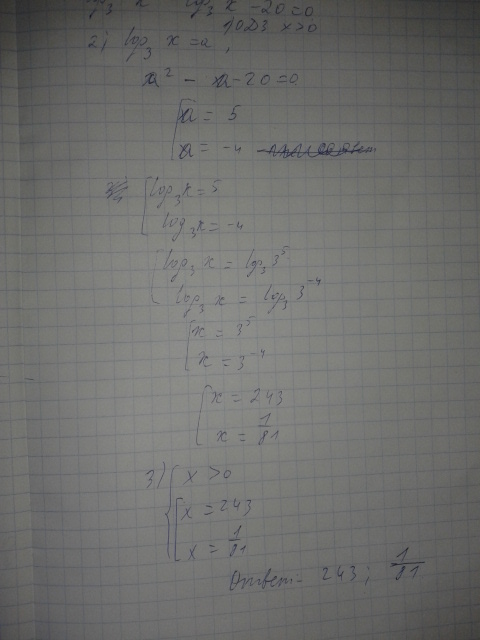 log₃² x - log₃ x - 20 = 0
1) ОДЗ x > 0
2) log₃ x = a,
a² - a - 20 = 0
[ a = 5
a = -4
[ log₃ x = 5
log₃ x = -4
[ log₃ x = log₃ 3⁵
log₃ x = log₃ 3⁻⁴
[ x = 3⁵
x = 3⁻⁴
[ x = 243
x = 1/81
3) { x > 0
[ x = 243
x = 1/81
Ответ: 243; 1/81